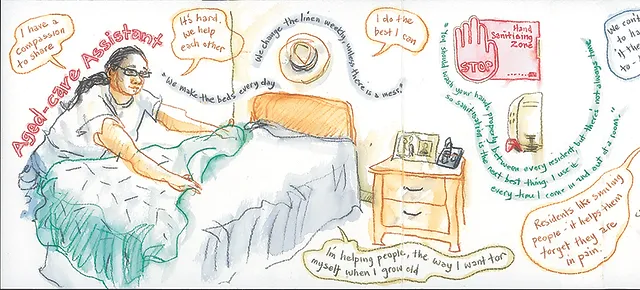 I have a
compassion
to share
Aged-care Assistant
It's hard.
We help
each other
"We make the beds every day
We change the linen weekly unless there is a mess."
I do the
best I can
I'm helping people, the way I want for
myself when I grow old
Hand
Sanitising
Zone
STOP
"You should wash your hands properly between every resident, but there's not always time
so sanitising is the next best thing. I use it
every time I come in and out of a room."
We can't
to
it
Residents like smiling
people - it helps them
forget they are
in pain..